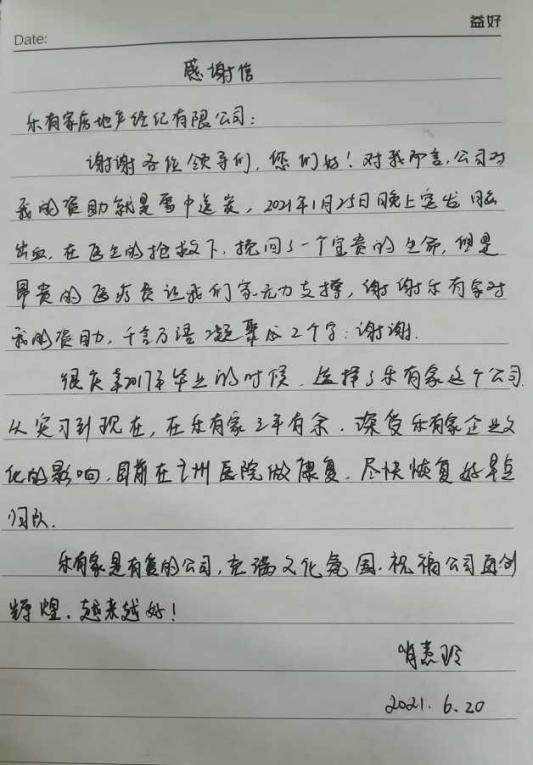 益好
Date:
感谢信
乐有家房地产经纪有限公司：
谢谢各位领导们，您们好！对我而言，公司对
我的资助就是雪中送炭，2021年1月25日晚上突发脑
出血，在医生的抢救下，挽回了一个宝贵的生命，但是
昂贵的医疗费让我们家无力支撑，谢谢乐有家对
我的资助，千言万语凝聚成2个字：谢谢.
很庆幸2017年毕业的时候，选择了乐有家这个公司.
从实习到现在，在乐有家3年有余. 深受乐有家企业文
化的影响，目前在广州医院做康复. 尽快恢复好早点
归队.
乐有家是有爱的公司，充满文化氛围. 祝福公司再创
辉煌. 越来越好！
肖惠玲
2021. 6. 20